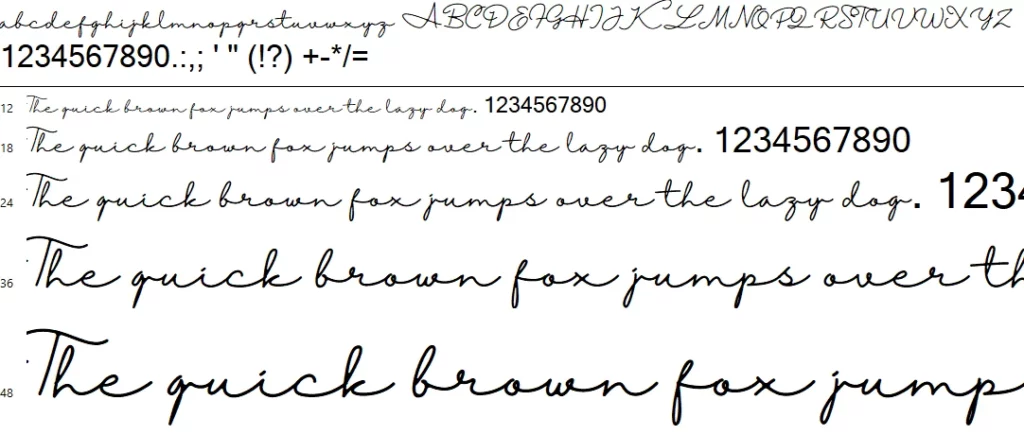 abcdefghijklmnopqrstuvwxyz ABCDEFGHIJKLMNOPQRSTUVWXYZ
1234567890.:,; ' " (!?) +-*/=
12 The quick brown fox jumps over the lazy dog. 1234567890
18 The quick brown fox jumps over the lazy dog. 1234567890
24 The quick brown fox jumps over the lazy dog. 123
36 The quick brown fox jumps over th
48 The quick brown fox jump